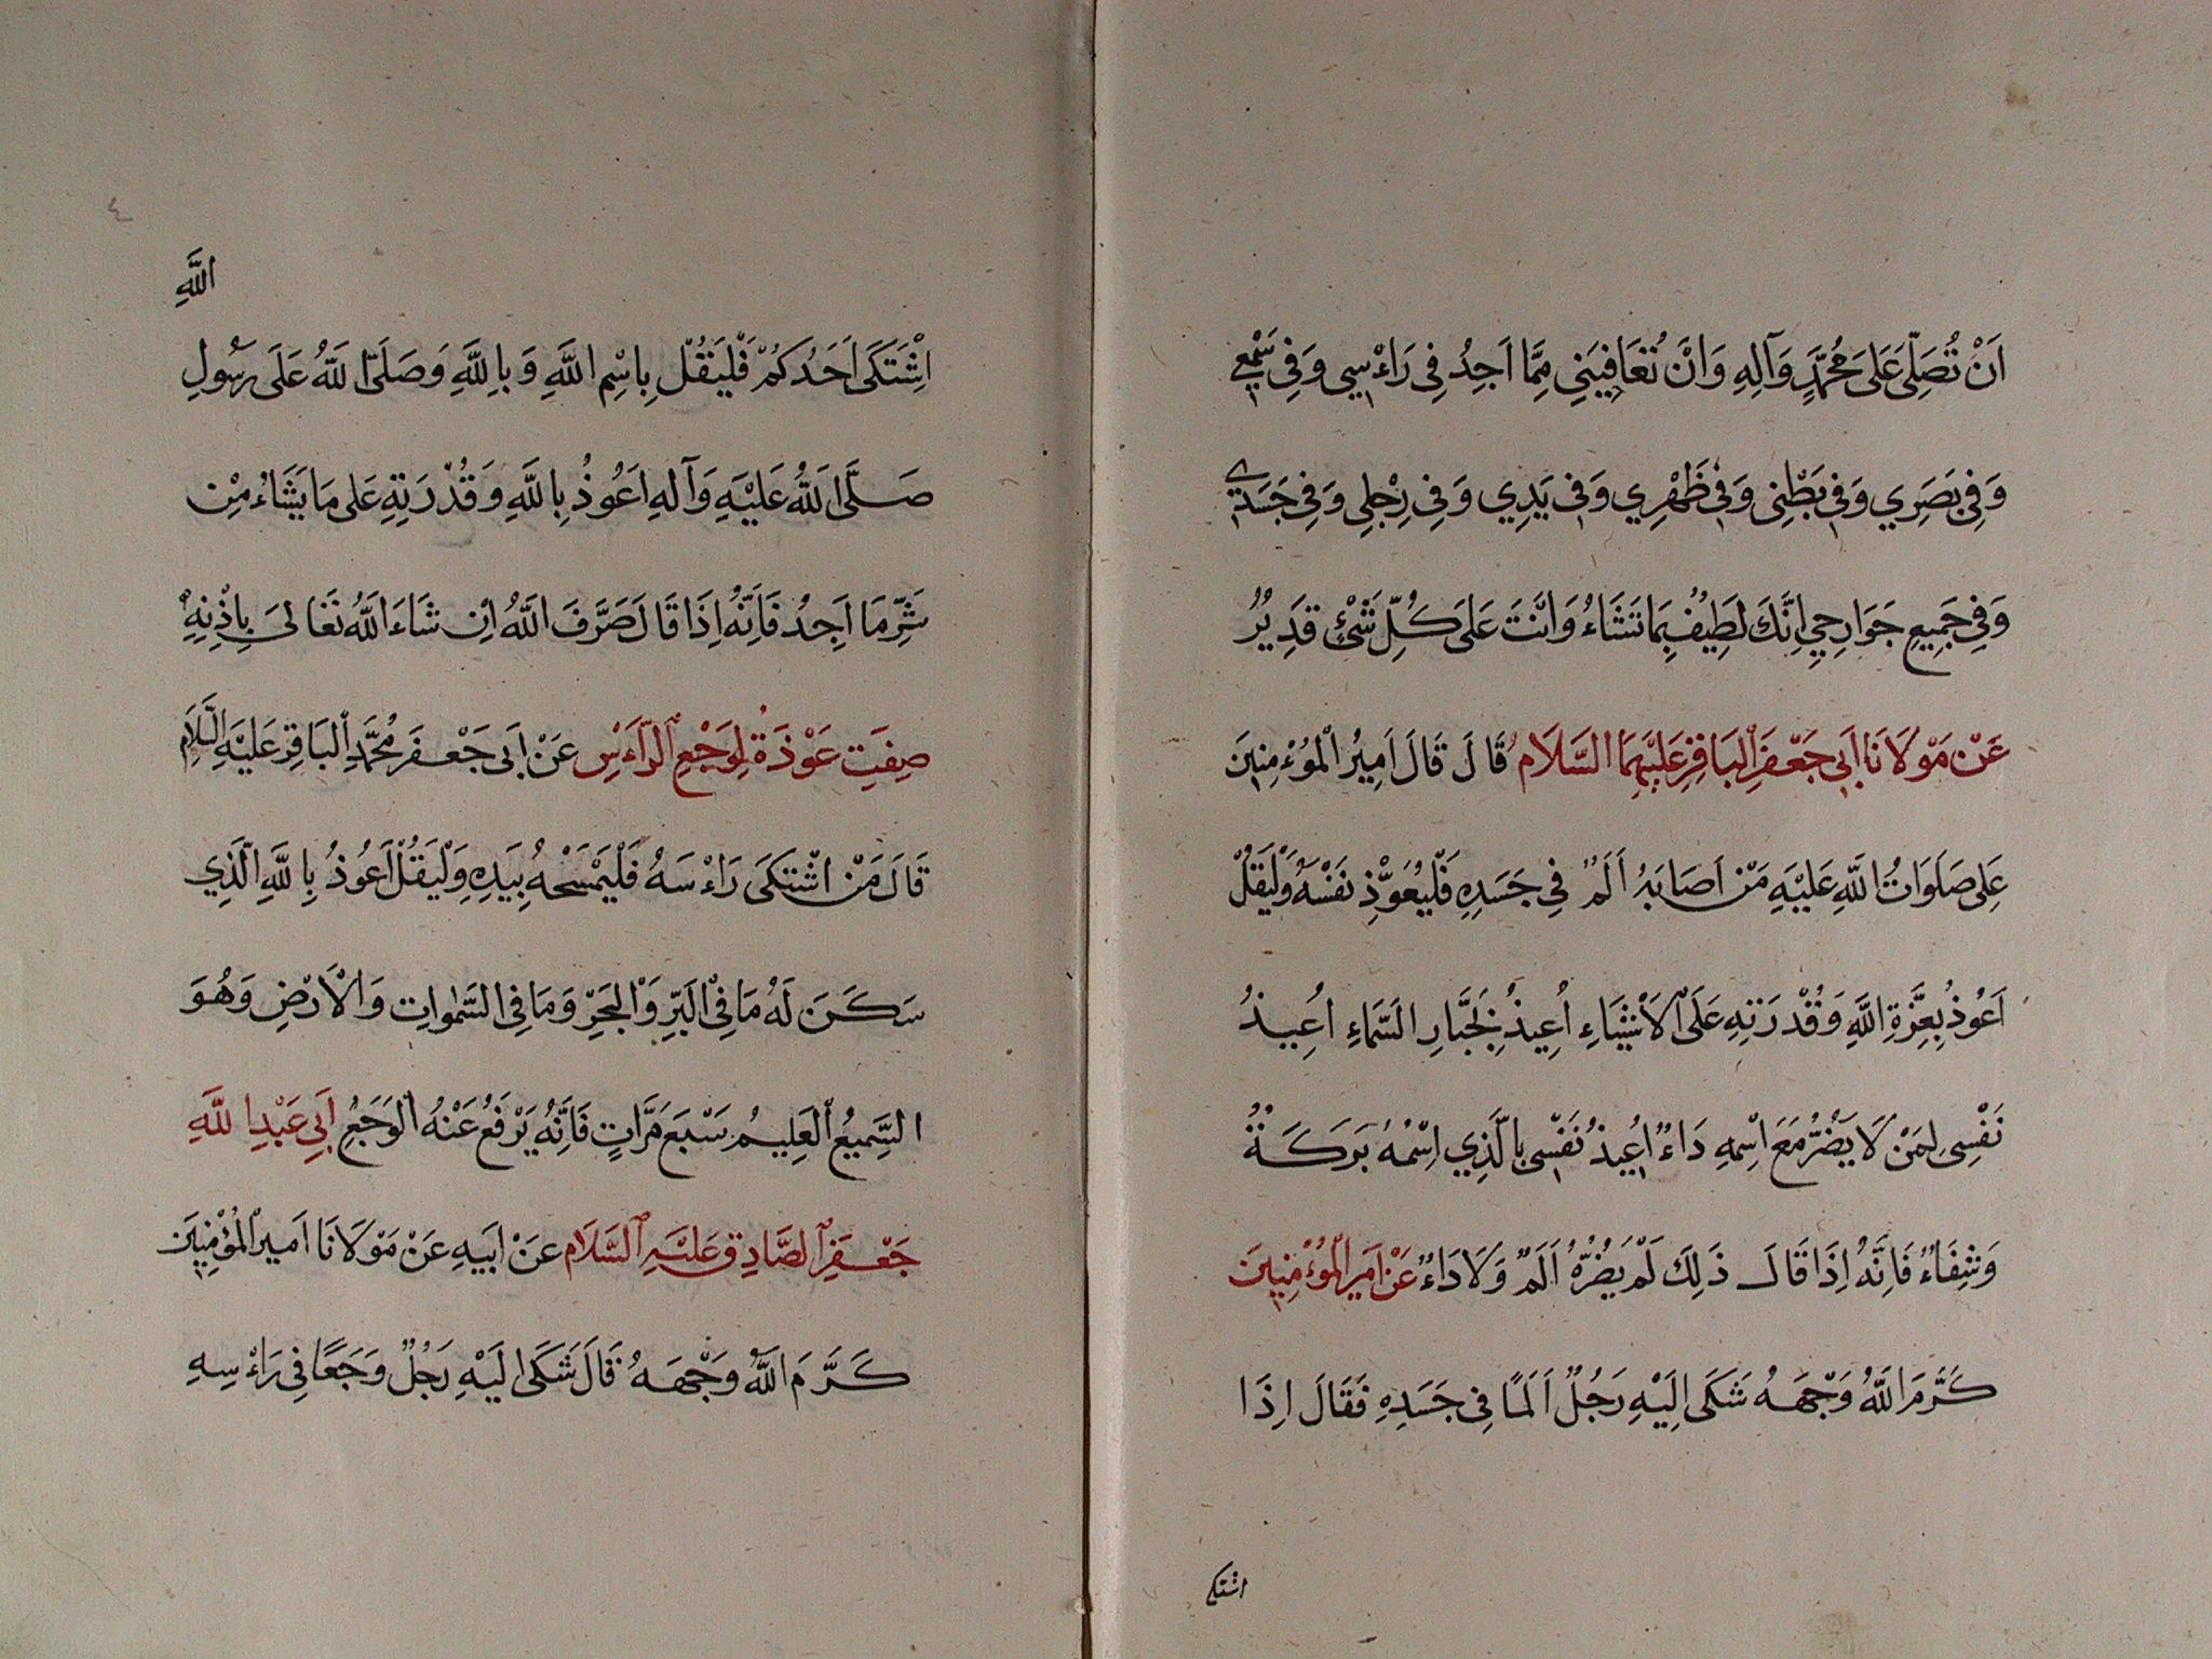 اَنْ تُصَلِّيَ عَلَى مُحَمَّدٍ وَآلِهِ وَاَنْ تُعَافِيَنِي مِمَّا اَجِدُ فِي رَاْءسِي وَفِي سَمْعِي
وَفِي بَصَرِي وَفِي بَطْنِي وَفِي ظَهْرِي وَفِي يَدِي وَفِي رِجْلِي وَفِي جَسَدِي
وَفِي جَمِيعِ جَوَارِحِي اِنَّكَ لَطِيفٌ بِمَا تَشَاءُ وَاَنْتَ عَلَى كُلِّ شَيْءٍ قَدِيرٌ
عَنْ مَوْلَانَا اَبِي جَعْفَرِ الْبَاقِرِ عَلَيْهِمَا السَّلَامُ قَالَ قَالَ اَمِيرُ الْمُوْءمِنِينَ
عَلِى صَلَوَاتُ اللَّهِ عَلَيْهِ مَنْ اَصَابَهُ اَلَمٌ فِي جَسَدِهِ فَلْيُعَوِّذْ نَفْسَهُ وَلْيَقُلْ
اَعُوذُ بِعِزَّةِ اللَّهِ وَقُدْرَتِهِ عَلَى الْاَشْيَاءِ اُعِيذُ بِجَبَّارِ السَّمَاءِ اُعِيذُ
نَفْسِى لِمَنْ لَا يَضُرُّ مَعَ اسْمِهِ دَاءٌ اُعِيذُ نَفْسِى بِالَّذِي اسْمُهُ بَرَكَةٌ
وَشِفَاءٌ فَاِنَّهُ اِذَا قَالَ ذَلِكَ لَمْ يَضُرَّهُ اَلَمٌ وَلَا دَاءٌ عَنْ اَمِيرِ الْمُوْءمِنِينَ
كَرَّمَ اللَّهُ وَجْهَهُ شَكَى اِلَيْهِ رَجُلٌ اَلَمًا فِي جَسَدِهِ فَقَالَ اِذَا
اشتكى
٤
اللَّهِ
اِشْتَكَى اَحَدُكُمْ فَلْيَقُلْ بِاسْمِ اللَّهِ وَبِاللَّهِ وَصَلَّى اللَّهُ عَلَى رَسُولِ
صَلَّى اللَّهُ عَلَيْهِ وَآلِهِ اَعُوذُ بِاللَّهِ وَقُدْرَتِهِ عَلَى مَا يَشَاءُ مِنْ
شَرِّ مَا اَجِدُ فَاِنَّهُ اِذَا قَالَ صَرَّفَ اللَّهُ اِن شَاءَ اللَّهُ تَعَالَى بِاِذْنِهِ
صِفَتِ عَوْذَةُ لِوَجْعِ الرَّاَءْسِ عَنْ اَبِي جَعْفَرٍ مُحَمَّدِ الْبَاقِرِ عَلَيْهِ السَّلَامِ
قَالَ مَنْ اشْتَكَى رَاءْسَهُ فَلْيَمْسَحْهُ بِيَدِهِ وَلْيَقُلْ اَعُوذُ بِاللَّهِ الَّذِي
سَكَنَ لَهُ مَا فِي الْبَرِّ وَالْبَحْرِ وَمَا فِي السَّمٰوَاتِ وَالْاَرْضِ وَهُوَ
السَّمِيعُ الْعَلِيمُ سَبْعَ مَرَّاتٍ فَاِنَّهُ يَرْفَعُ عَنْهُ الْوَجَعِ اَبِي عَبْدِ اللَّهِ
جَعْفَرِ الصَّادِقِ عَلَيْهِ السَّلَامِ عَنْ اَبِيهِ عَنْ مَوْلَانَا اَمِيرِ الْمُوْمِنِينَ
كَرَّمَ اللَّهُ وَجْهَهُ قَالَ شَكَى اِلَيْهِ رَجُلٌ وَجَعًا فِي رَاءْسِهِ